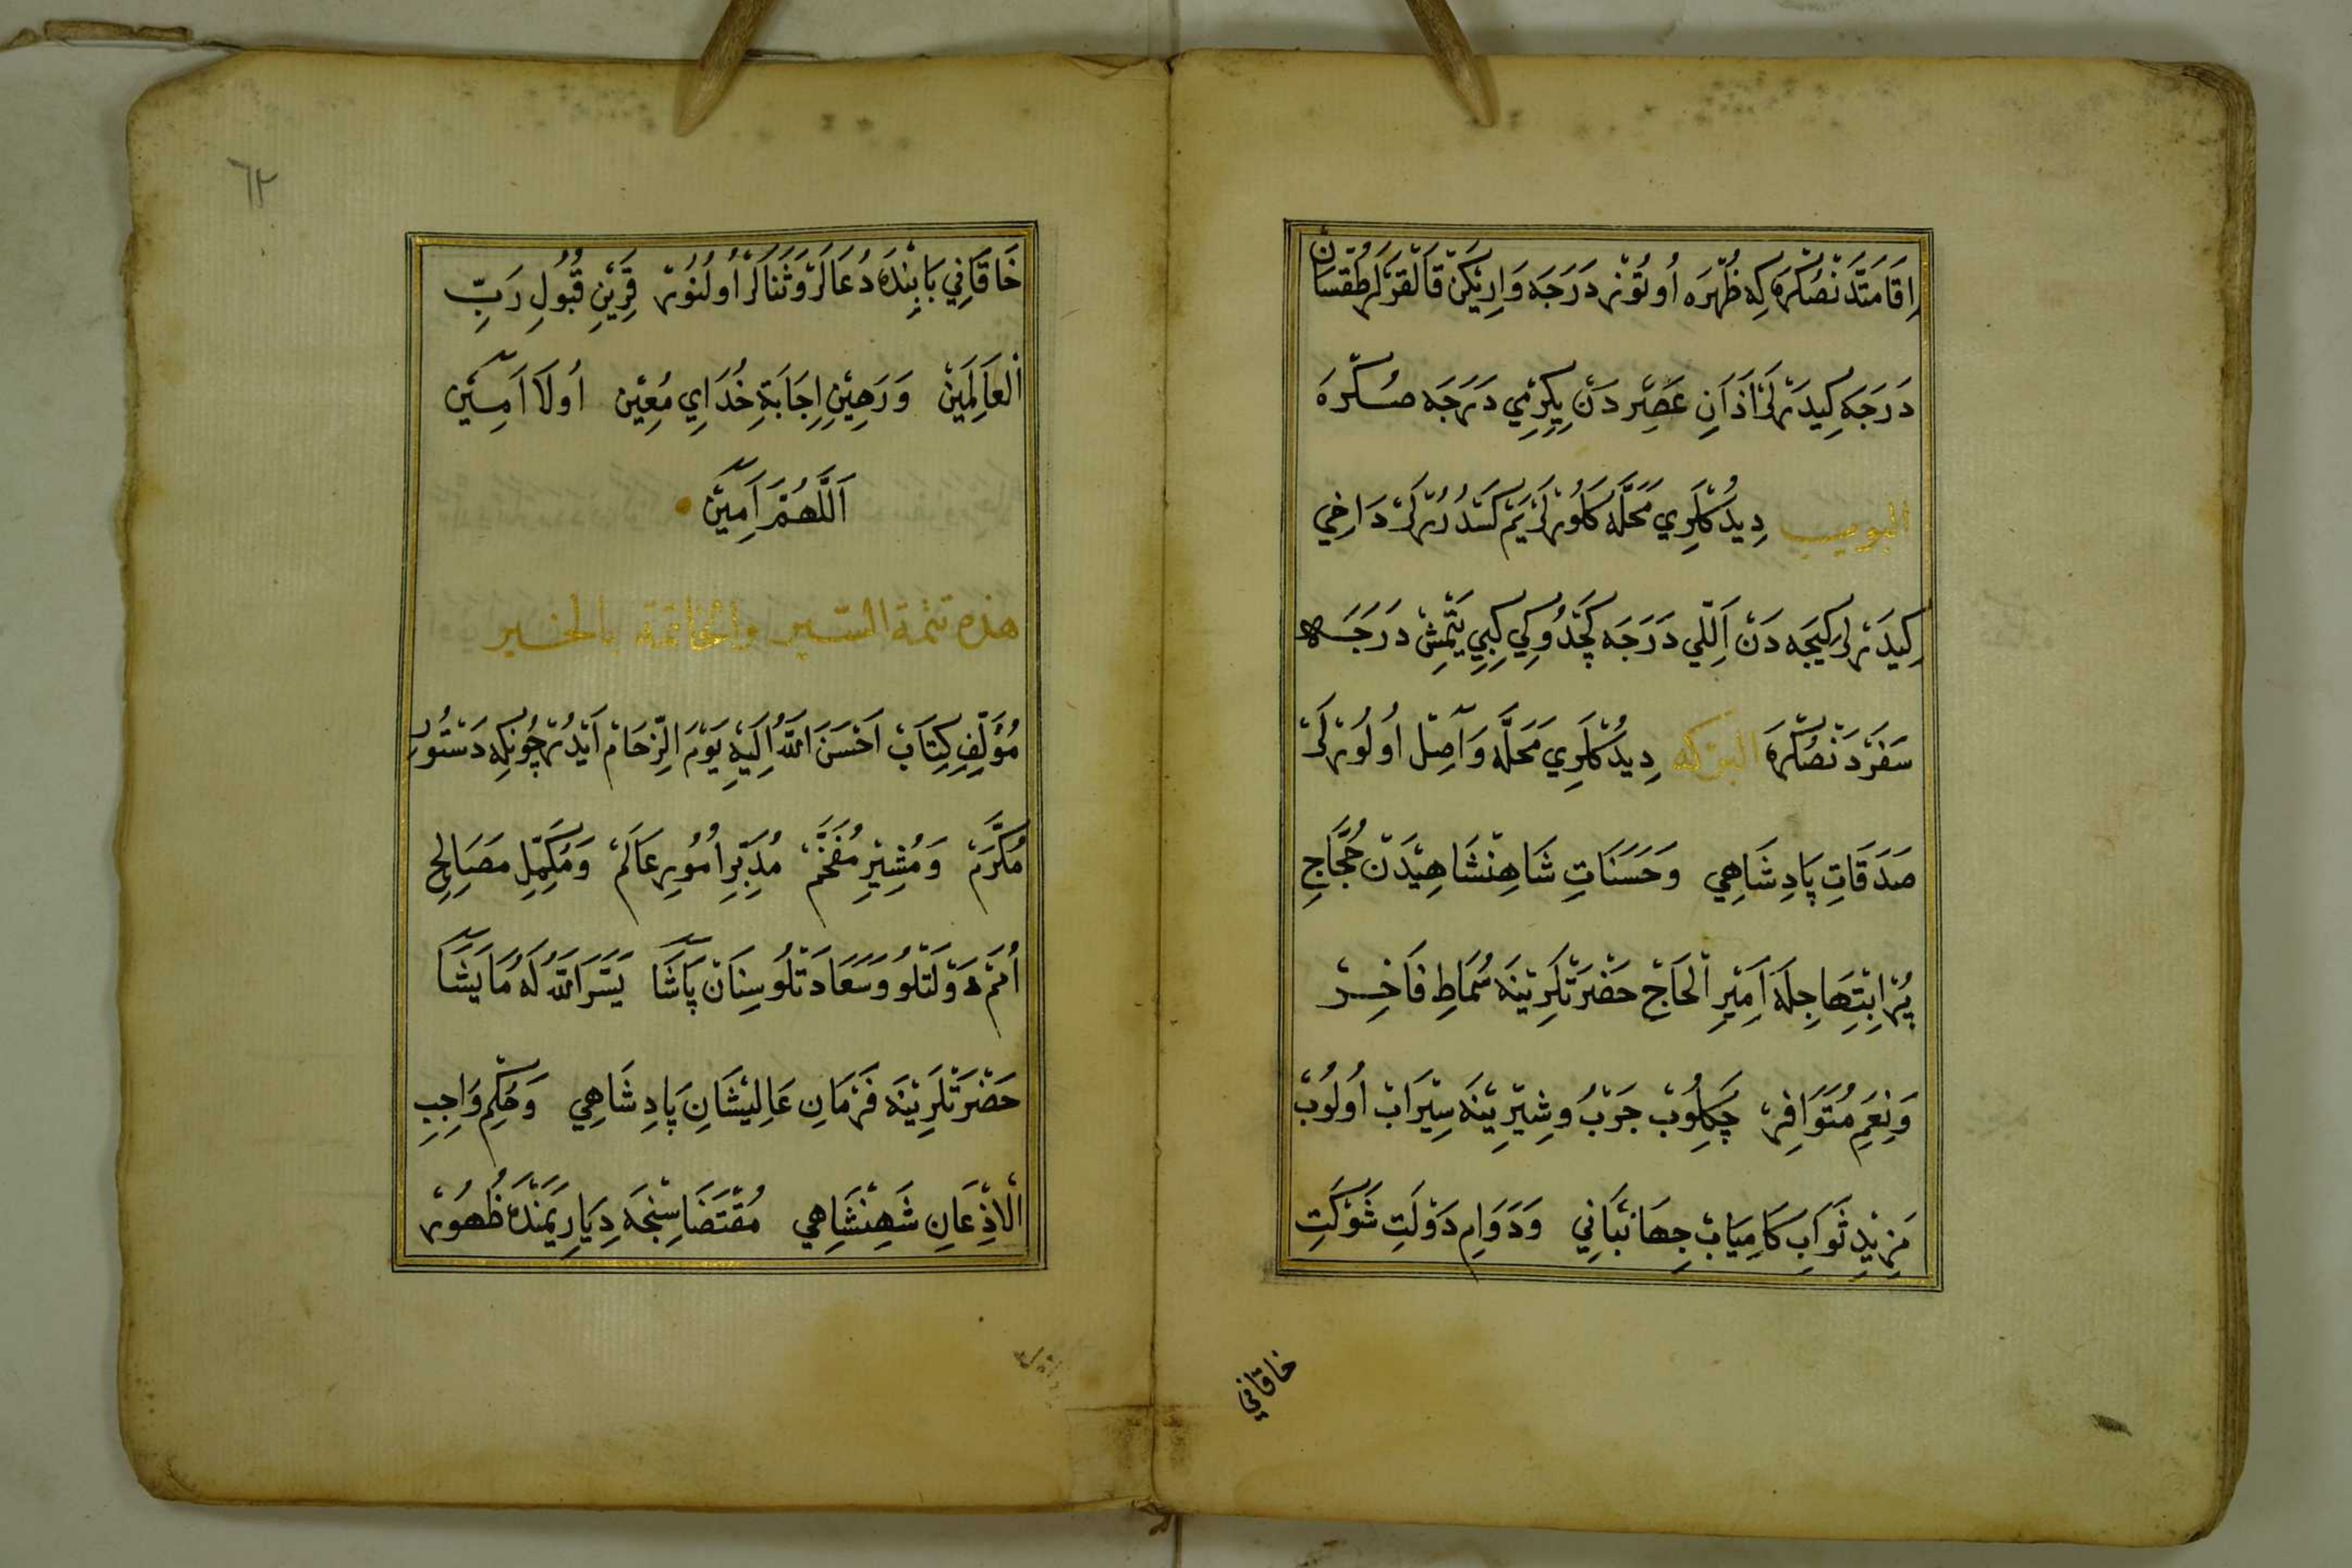 اِقَامَتْدَنْصُكْرَه كِه ظُهْرَه اُوتُوزْ دَرَجَه وَارِيكَنْ قَالْقَرْلَرْ طُقْسَانْ
دَرَجَه كِيدَرْلَرْ اَذَانِ عَصِرْدَنْ يِكِرْمِي دَرَجَه صُكْرَه
البويب دِيدُكْلَرِي مَحَلَّه كَلُورْلَرْ يَمْ كَسْدُرُرْلَرْ دَاخِي
كِيدَرْلَرْ كِيجَه دَنْ اَللّي دَرَجَه كَچْدُوكِي كِبِي يَتْمِشْ دَرَجَه
سَفَرْدَنْصُكْرَه البركه دِيدُكْلَرِي مَحَلَّه وَآصِلْ اُولُورْلَرْ
صَدَقَاتِ پَادِشَاهِي وَحَسَنَاتِ شَاهِنْشَاهِيدَنْ حُجَّاجِ
پُرْ اِبْتِهَاجِلَه اَمِيرِ الْحَاجْ حَضْرَتْلَرِينَه سُمَاطِ فَاخِرْ
وَنِعَمِ مُتَوَافِرْ چَكِلُوبْ جَرْبُ وشِيرِينَه سِيرَابْ اُولُوبْ
مَزِيدِ ثَوَابِ كَامِيَابْ جِهَانْبَانِي وَدَوَامِ دَوْلَتِ شَوْكَتِ
خاقاني
٦٢
خَاقَانِي بَابِنْدَه دُعَالَرْ وَثَنَالَرْ اُولُنُورْ قَرِينِ قُبُولِ رَبِّ
الْعَالَمِينْ وَرَهِينِ اِجَابَةِ خُدَايِ مُعِينْ اُولَا آمِينْ
اَللَّهُمَّ آمِينْ
هذه تتمة السير والخاتمة بالخير
مُؤَلِّفِ كِتَابْ اَحْسَنَ اللَّهُ اِلَيْهِ يَوْمَ الزِّحَامْ اَيْدُرْ چُونكِه دَسْتُورِ
مُكَرَّمْ وَمُشِيرِ مُفَخَّمْ مُدَبِّرِ اُمُورِ عَالَمْ وَمُكَمِّلِ مَصَالِحِ
اُمَمْ دَوْلَتْلُو وَسَعَادَتْلُو سِنَانْ پَاشَا يَسَّرَ اللَّهُ لَهُ مَا يَشَا
حَضْرَتْلَرِينَه فَرْمَانِ عَالِيشَانِ پَادِشَاهِي وَحُكْمِ وَاجِبِ
الْاِذْعَانِ شَهِنْشَاهِي مُقْتَضَاسِنْجَه دِيَارِ يَمَنْدَه ظُهُورْ